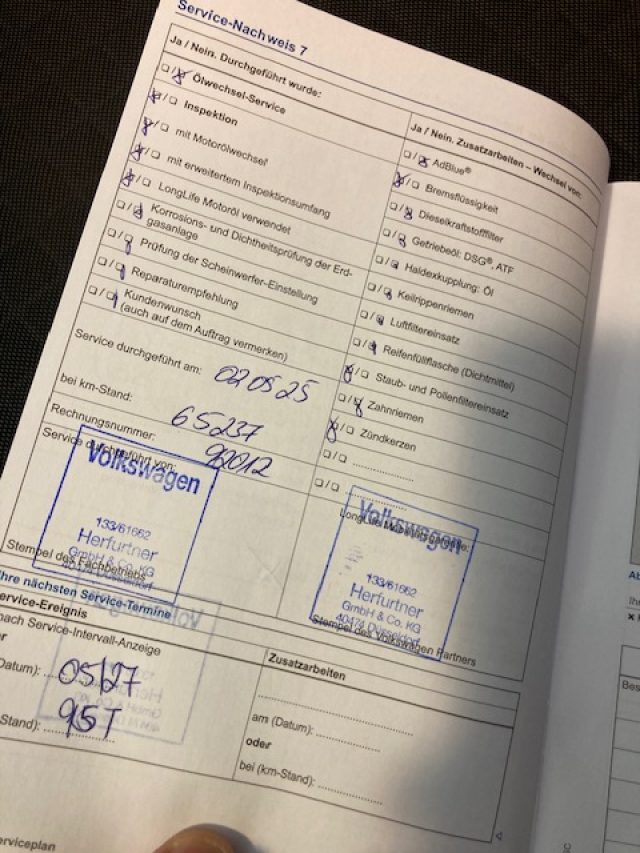 Service-Nachweis 7
Ja / Nein. Durchgeführt wurde:
Ölwechsel-Service
Inspektion
mit Motorölwechsel
mit erweitertem Inspektionsumfang
LongLife Motoröl verwendet
Korrosions- und Dichtheitsprüfung der Erd-
gasanlage
Prüfung der Scheinwerfer-Einstellung
Reparaturempfehlung
Kundenwunsch
(auch auf dem Auftrag vermerken)
Ja / Nein. Zusatzarbeiten – Wechsel von:
AdBlue®
Bremsflüssigkeit
Dieselkraftstofffilter
Getriebeöl: DSG®, ATF
Haldexkupplung: Öl
Keilrippenriemen
Luftfiltereinsatz
Reifenfüllflasche (Dichtmittel)
Staub- und Pollenfiltereinsatz
Zahnriemen
Zündkerzen
Service durchgeführt am: 02 05 25
bei km-Stand: 65237
Rechnungsnummer: 98012
Service durchgeführt von:
Volkswagen
133/61662
Herfurtner
GmbH & Co. KG
40474 Düsseldorf
Stempel des Fachbetriebs
LongLife Mobilitätsgarantie:
Volkswagen
133/61662
Herfurtner
GmbH & Co. KG
40474 Düsseldorf
Stempel des Volkswagen Partners
Ihre nächsten Service-Termine
Service-Ereignis
nach Service-Intervall-Anzeige
Datum): 05/27
Stand): 95T
Zusatzarbeiten
am (Datum):
oder
bei (km-Stand):
erviceplan